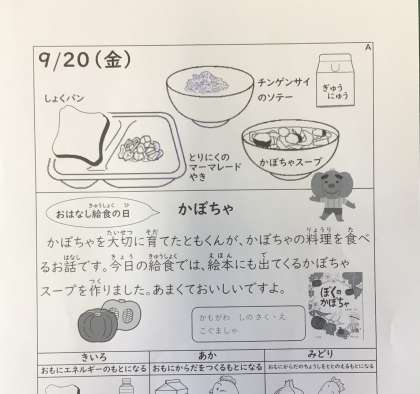 A
9/20(金)
しょくパン
チンゲンサイ
のソテー
ぎゅう
にゅう
とりにくの
マーマレード
やき
かぼちゃスープ
おはなし給食の日
かぼちゃ
かぼちゃを大切に育てたともくんが、かぼちゃの料理を食べ
るお話です。今日の給食では、絵本にも出てくるかぼちゃ
スープを作りました。あまくておいしいですよ。
ぼくの
かぼちゃ
かもがわ しのさく・え
こぐましゃ
きいろ
あか
みどり
おもにエネルギーのもとになる
おもにからだをつくるもとになる
おもにからだのちょうしをととのえるもとになる